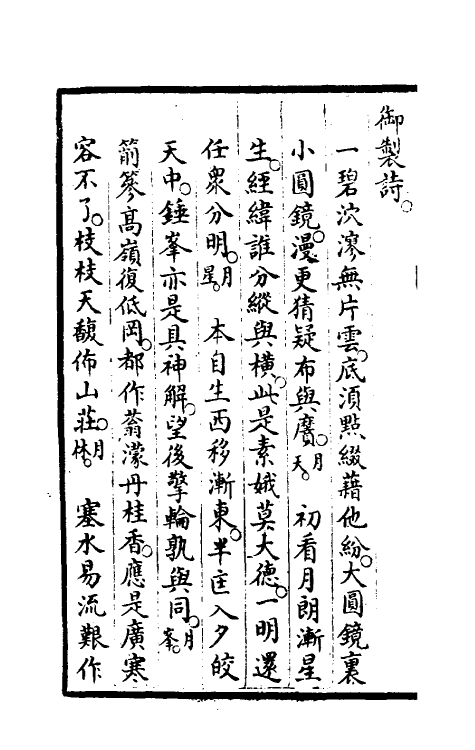 御製詩。
一碧泬漻無片雲。底須㸃綴藉他紛。大圓鏡裏
小圓鏡。漫更猜疑布與黂。月天。 初看月朗漸星
生。經緯誰分縱與横。此是素娥莫大德。一明還
任衆分明。月星。 本自生西移漸東。半㫌入夕皎
天中。錘峯亦是具神解。望後擎輪孰與同。月峯。
箭篸髙嶺復低岡。都作蓊濛丹桂香。應是廣寒
容不了。枝枝天馥佈山莊。月林。 塞水易流艱作